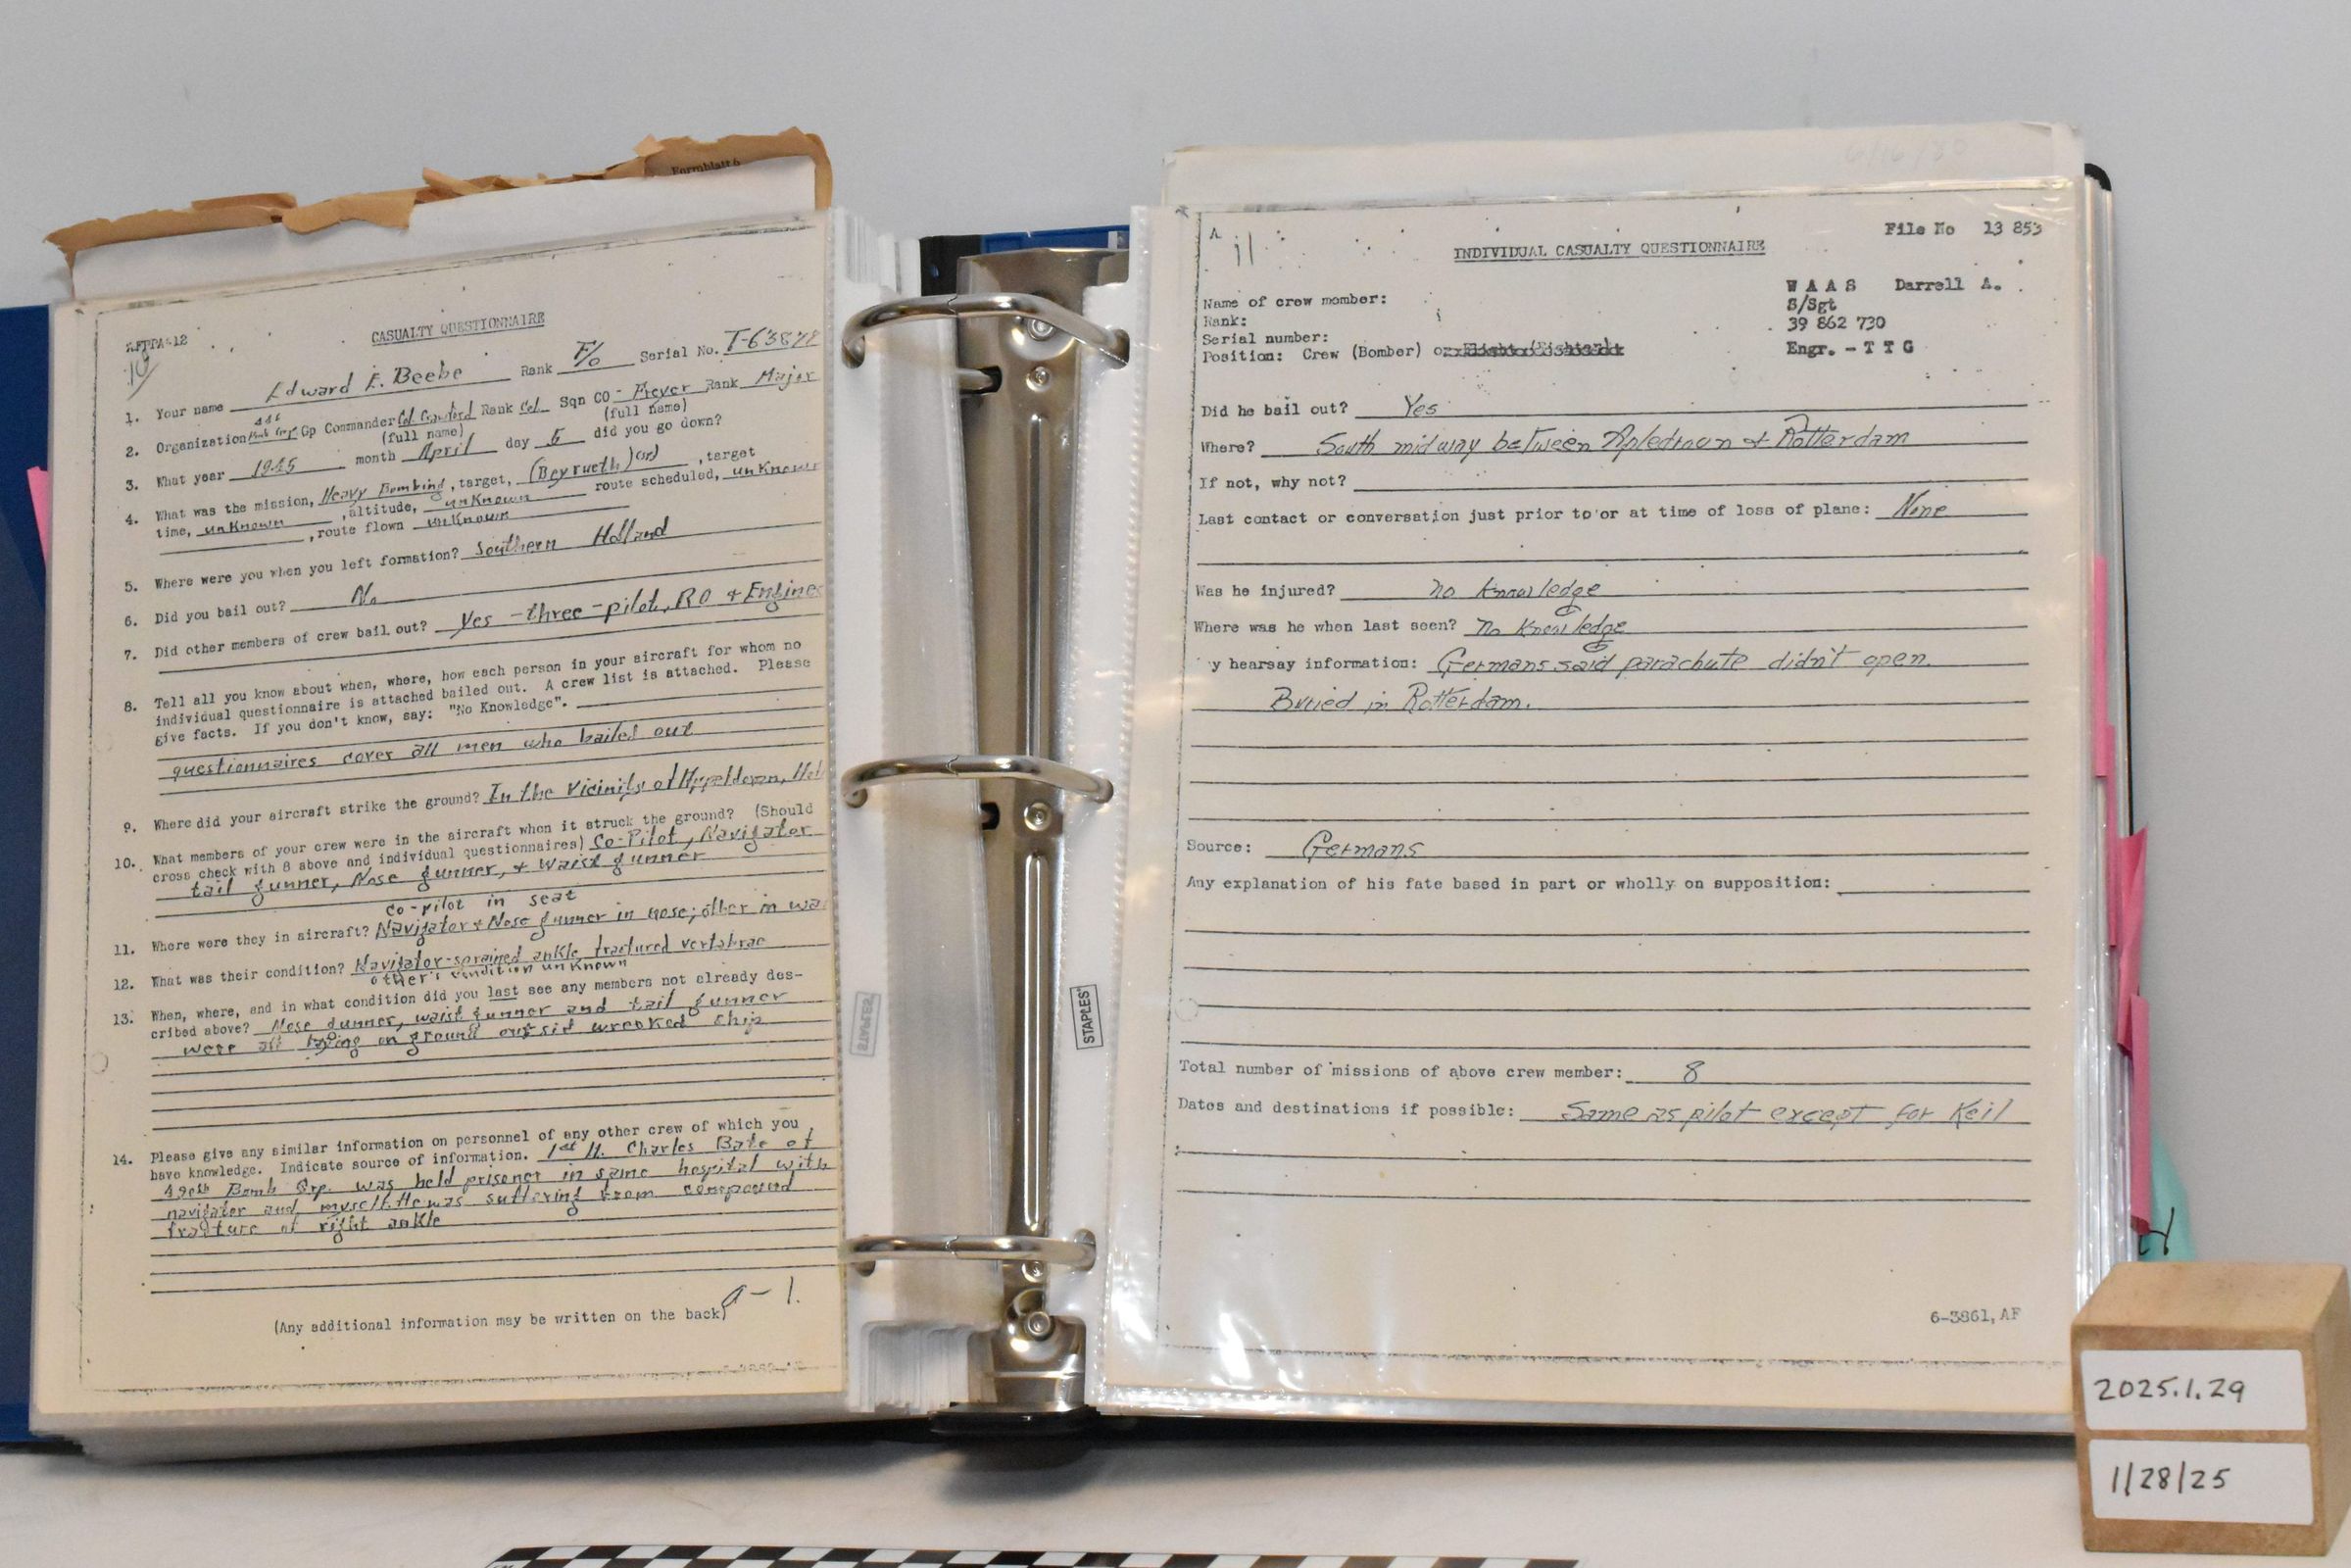 Formblatt 6
AFPPA-12
CASUALTY QUESTIONNAIRE
10/
1. Your name Edward E. Beebe Rank F/o Serial No. T-63878
2. Organization Gp Commander Col Crawford Rank Col Sqn CO - Freyer Rank Major
(full name) (full name)
3. What year 1945 month April day 5 did you go down?
4. What was the mission, Heavy Bombing, target, (Beyrueth)(or), target
time, unknown, altitude, unknown route scheduled, unknown
, route flown unknown
5. Where were you when you left formation? Southern Holland
6. Did you bail out? No
7. Did other members of crew bail out? Yes - three - pilot, RO & Engineer
8. Tell all you know about when, where, how each person in your aircraft for whom no
individual questionnaire is attached bailed out. A crew list is attached. Please
give facts. If you don't know, say: "No Knowledge".
questionnaires cover all men who bailed out
9. Where did your aircraft strike the ground? In the Vicinity of
10. What members of your crew were in the aircraft when it struck the ground? (Should
cross check with 8 above and individual questionnaires) Co-Pilot, Navigator
tail gunner, Nose gunner, & Waist gunner
co-pilot in seat
11. Where were they in aircraft? Navigator & Nose gunner in nose; other in wa
12. What was their condition? Navigator-sprained ankle, fractured vertabrae
other's condition unknown
13. When, where, and in what condition did you last see any members not already des-
cribed above? Nose gunner, waist gunner and tail gunner
were all lying on ground outsid wrecked ship
14. Please give any similar information on personnel of any other crew of which you
have knowledge. Indicate source of information. 1st Lt. Charles Bate of
490th Bomb Grp. was held prisoner in same hospital with
navigator and myself. He was suffering from compound
fracture of right ankle
a-1.
(Any additional information may be written on the back)
A
11
File No 13 853
INDIVIDUAL CASUALTY QUESTIONNAIRE
Name of crew member: W A A S Darrell A.
Rank: S/Sgt
Serial number: 39 862 730
Position: Crew (Bomber) or Engr. - T T G
Did he bail out? Yes
Where? South midway between Apledroun & Rotterdam
If not, why not?
Last contact or conversation just prior to or at time of loss of plane: None
Was he injured? no knowledge
Where was he when last seen? no knowledge
y hearsay information: Germans said parachute didn't open.
Buried in Rotterdam.
Source: Germans
Any explanation of his fate based in part or wholly on supposition:
Total number of missions of above crew member: 8
Dates and destinations if possible: Same as pilot except for Keil
6-3861, AF
STAPLES
2025.1.29
1/28/25